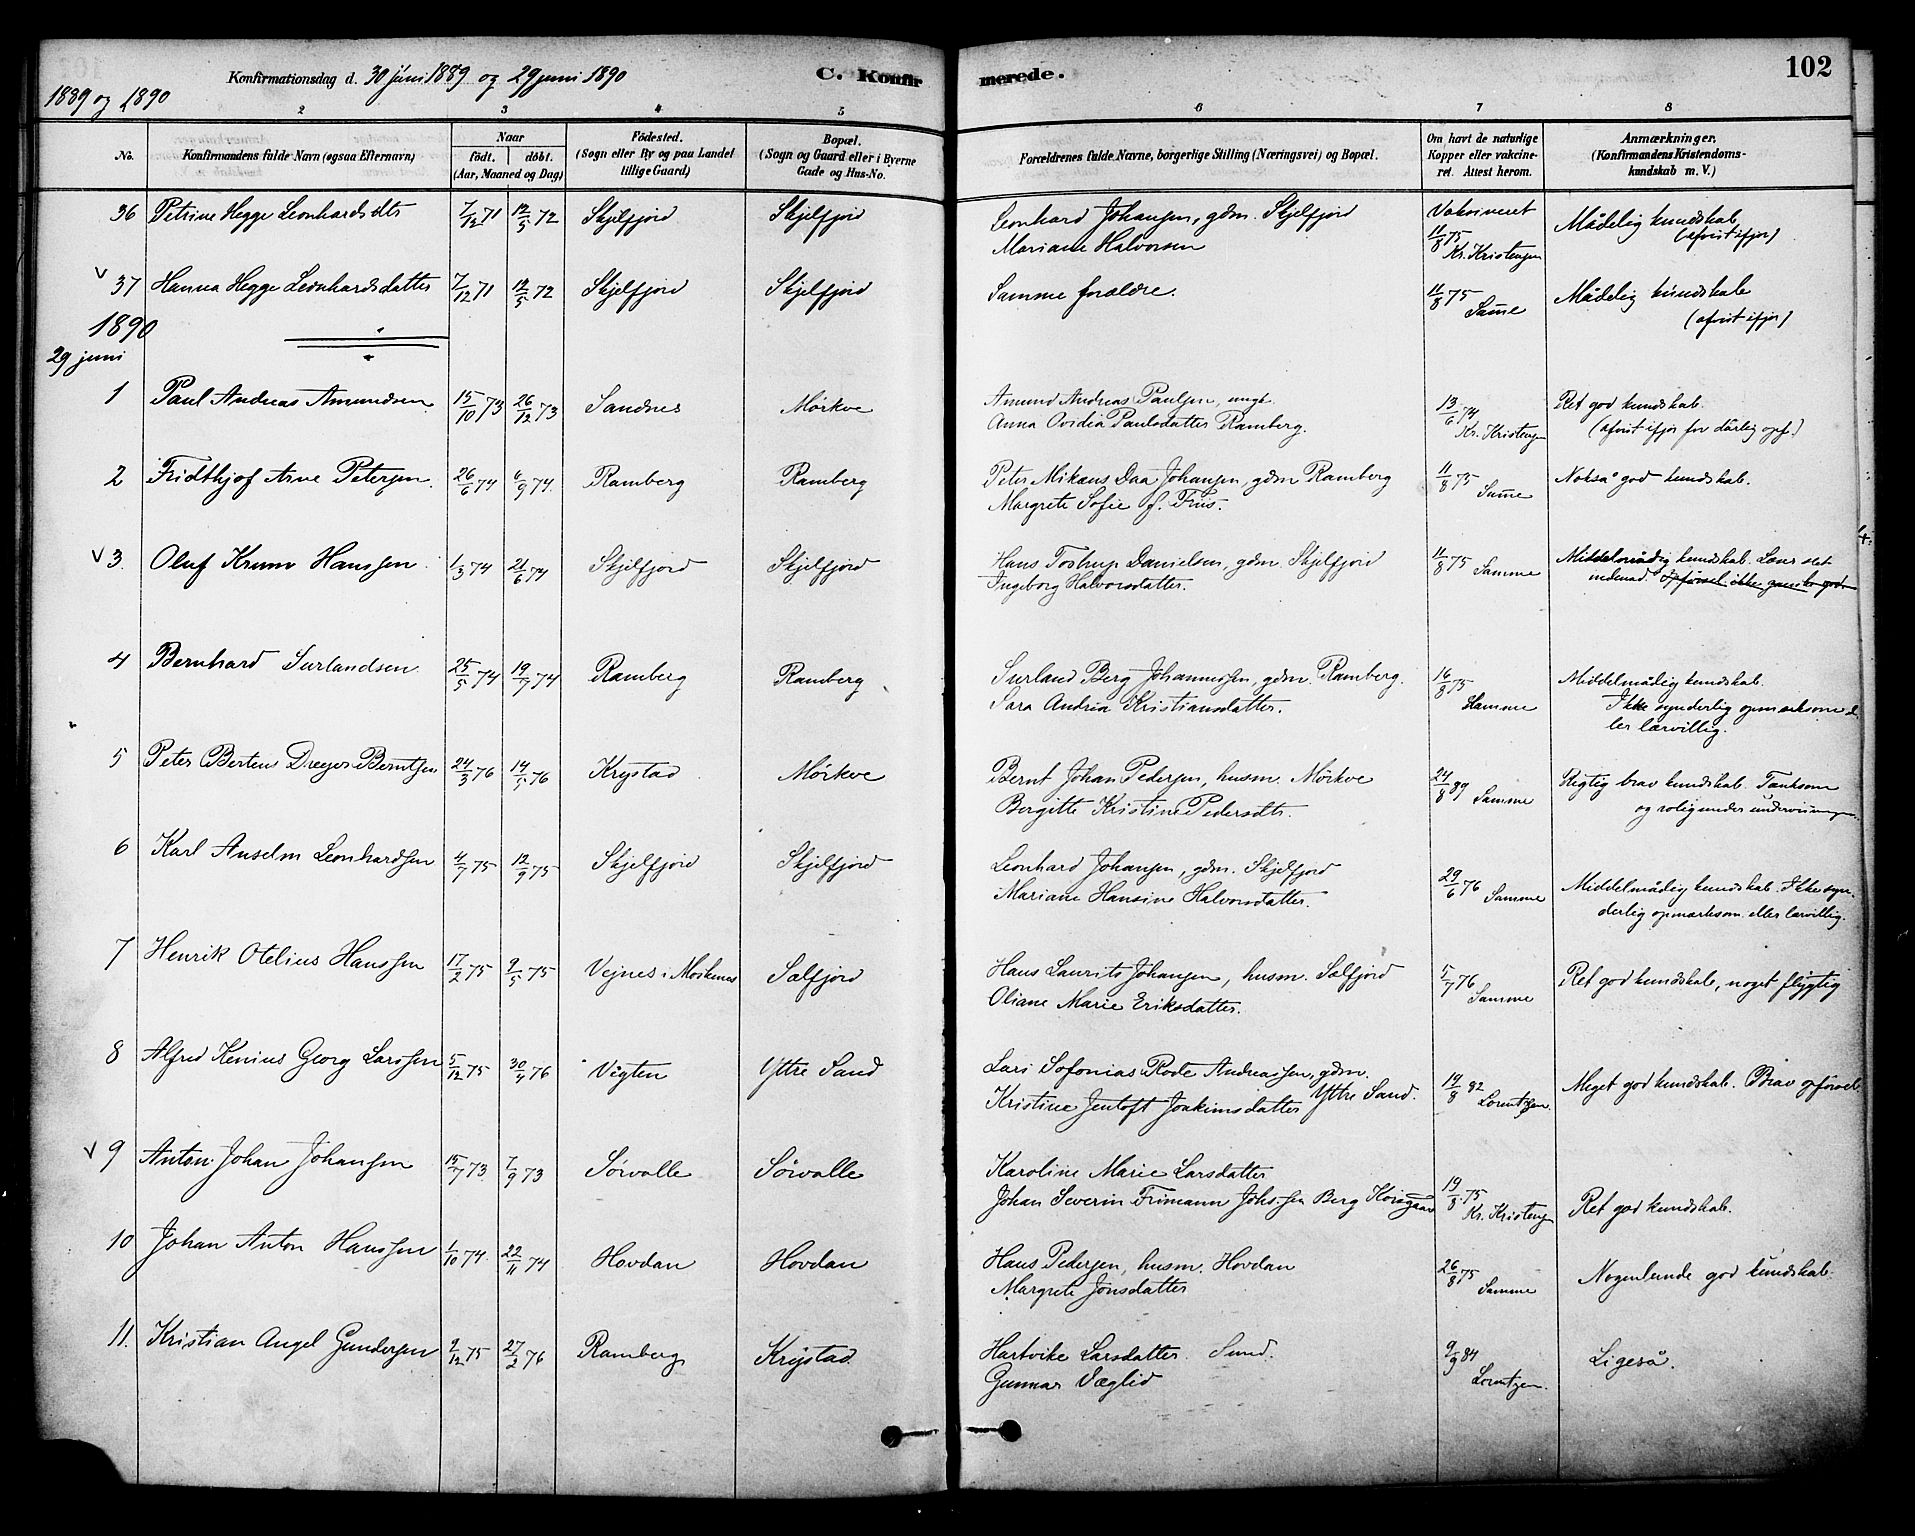 Konfirmationsdag d. 30 juni 1889 og 29 juni 1890
C. Konfirmerede.
102
1889 og 1890
2 3 4 5 6 7 8
No.
Konfirmandens fulde Navn (ogsaa Efternavn)
Naar
født. døbt.
(Aar, Maaned og Dag)
Fødested.
(Sogn eller By og paa Landet
tillige Gaard)
Bopæl.
(Sogn og Gaard eller i Byerne
Gade og Hus-No.
Forældrenes fulde Navne, borgerlige Stilling (Næringsvei) og Bopæl.
Om havt de naturlige
Kopper eller vakcine-
ret. Attest herom.
Anmærkninger,
(Konfirmandens Kristendoms-
kundskab m. V.)
36 Petrine Hegge Leonhardsdtr 7/12 71 12/5 72 Skjelfjord Skjelfjord Leonhard Johansen, gdm. Skjelfjord Vaksineret Mådelig kundskab
Mariane Halvorsen 11/8 75 Kr. Kristensen (afvist ifjor)
V 37 Hanna Hegge Leonhardsdatter 7/12 71 12/5 72 Skjelfjord Skjelfjord Samme forældre. 11/8 75 Samme Mådelig kundskab
(afvist ifjor)
1890
29 juni
1 Paul Andreas Amundsen 15/10 73 26/12 73 Sandnes Mørkve Amund Andreas Paulsen, ungk. 13/6 74 Ret god kundskab.
Anna Ovidia Paulsdatter Ramberg. Kr. Kristensen (afvist ifjor for dårlig opf.)
2 Fridthjof Arne Petersen. 26/6 74 6/9 74. Ramberg Ramberg Peter Mikaus Daa Johansen, gdm Ramberg 11/8 75 Samme Nokså god kundskab.
Margrete Sofie f. Friis.
V 3. Oluf Krum Hanssen. 1/3 74 21/6 74 Skjelfjord Skjelfjord Hans Tostrup Danielsen, gdm. Skjelfjord 11/8 75 Samme Middelmådig kundskab. Læser slet
Ingeborg Halvorsdatter. indenad. Opførsel ikke ganske god
4 Bernhard Surlandsen 25/5 74 19/7 74 Ramberg Ramberg Surland Berg Johannessen, gdm. Ramberg. 16/8 75 Middelmådig kundskab.
Sara Andria Kristiansdatter. Samme Ikke synderlig opmærksom el-
ler lærvillig.
5 Peter Bertens Dreyer Berntsen 24/3 76 14/5 76 Krystad Mørkve Bernt Johan Pedersen, husm. Mørkve 24/8 89 Samme Rigtig brav kundskab. Tænksom
Bergitte Kristine Pedersdtr. og rolig under undervisningen
6 Karl Anselm Leonhardsen 4/7 75 12/9 75 Skjelfjord Skjelfjord Leonhard Johansen, gdm. Skjelfjord 29/6 76 Samme Middelmådig kundskab. Ikke syn-
Mariane Hansine Halvorsdatter. derlig opmærksom eller lærvillig.
7 Henrik Otelius Hanssen 17/2 75 9/5 75 Vejnes i Moskenes Sælfjord Hans Laurits Johansen, husm. Sælfjord 5/7 76 Samme Ret god kundskab, noget flygtig
Oliane Marie Eriksdatter.
8 Alfred Kenius Georg Larssen 5/12 75 30/4 76 Vigten Yttre Sand Lars Sofonias Rode Andreassen, gdm.
Kristine Jentoft Joakimsdatter Yttre Sand. 19/8 82 Lorentzen. Meget god kundskab. Brav opførsel
V 9 Anton Johan Johansen 15/7 73 7/9 73 Sørvalle Sørvalle Karoline Marie Larsdatter
Johan Severin Frimann Johssen Berg Korsgaar 19/8 75 Kr. Kristensen Ret god kundskab.
10 Johan Anton Hanssen 1/10 74. 22/11 74 Hovdan Hovdan Hans Pedersen, husm. Hovdan 26/8 75 Samme Nogenlunde god kundskab.
Margrete Jonsdatter
11. Kristian Angel Gundersen 9/12 75 27/2 76 Ramberg Krystad Hartvike Larsdatter. Sund. 9/9 84 Ligeså.
Gunnar Væglid Lorentzen.